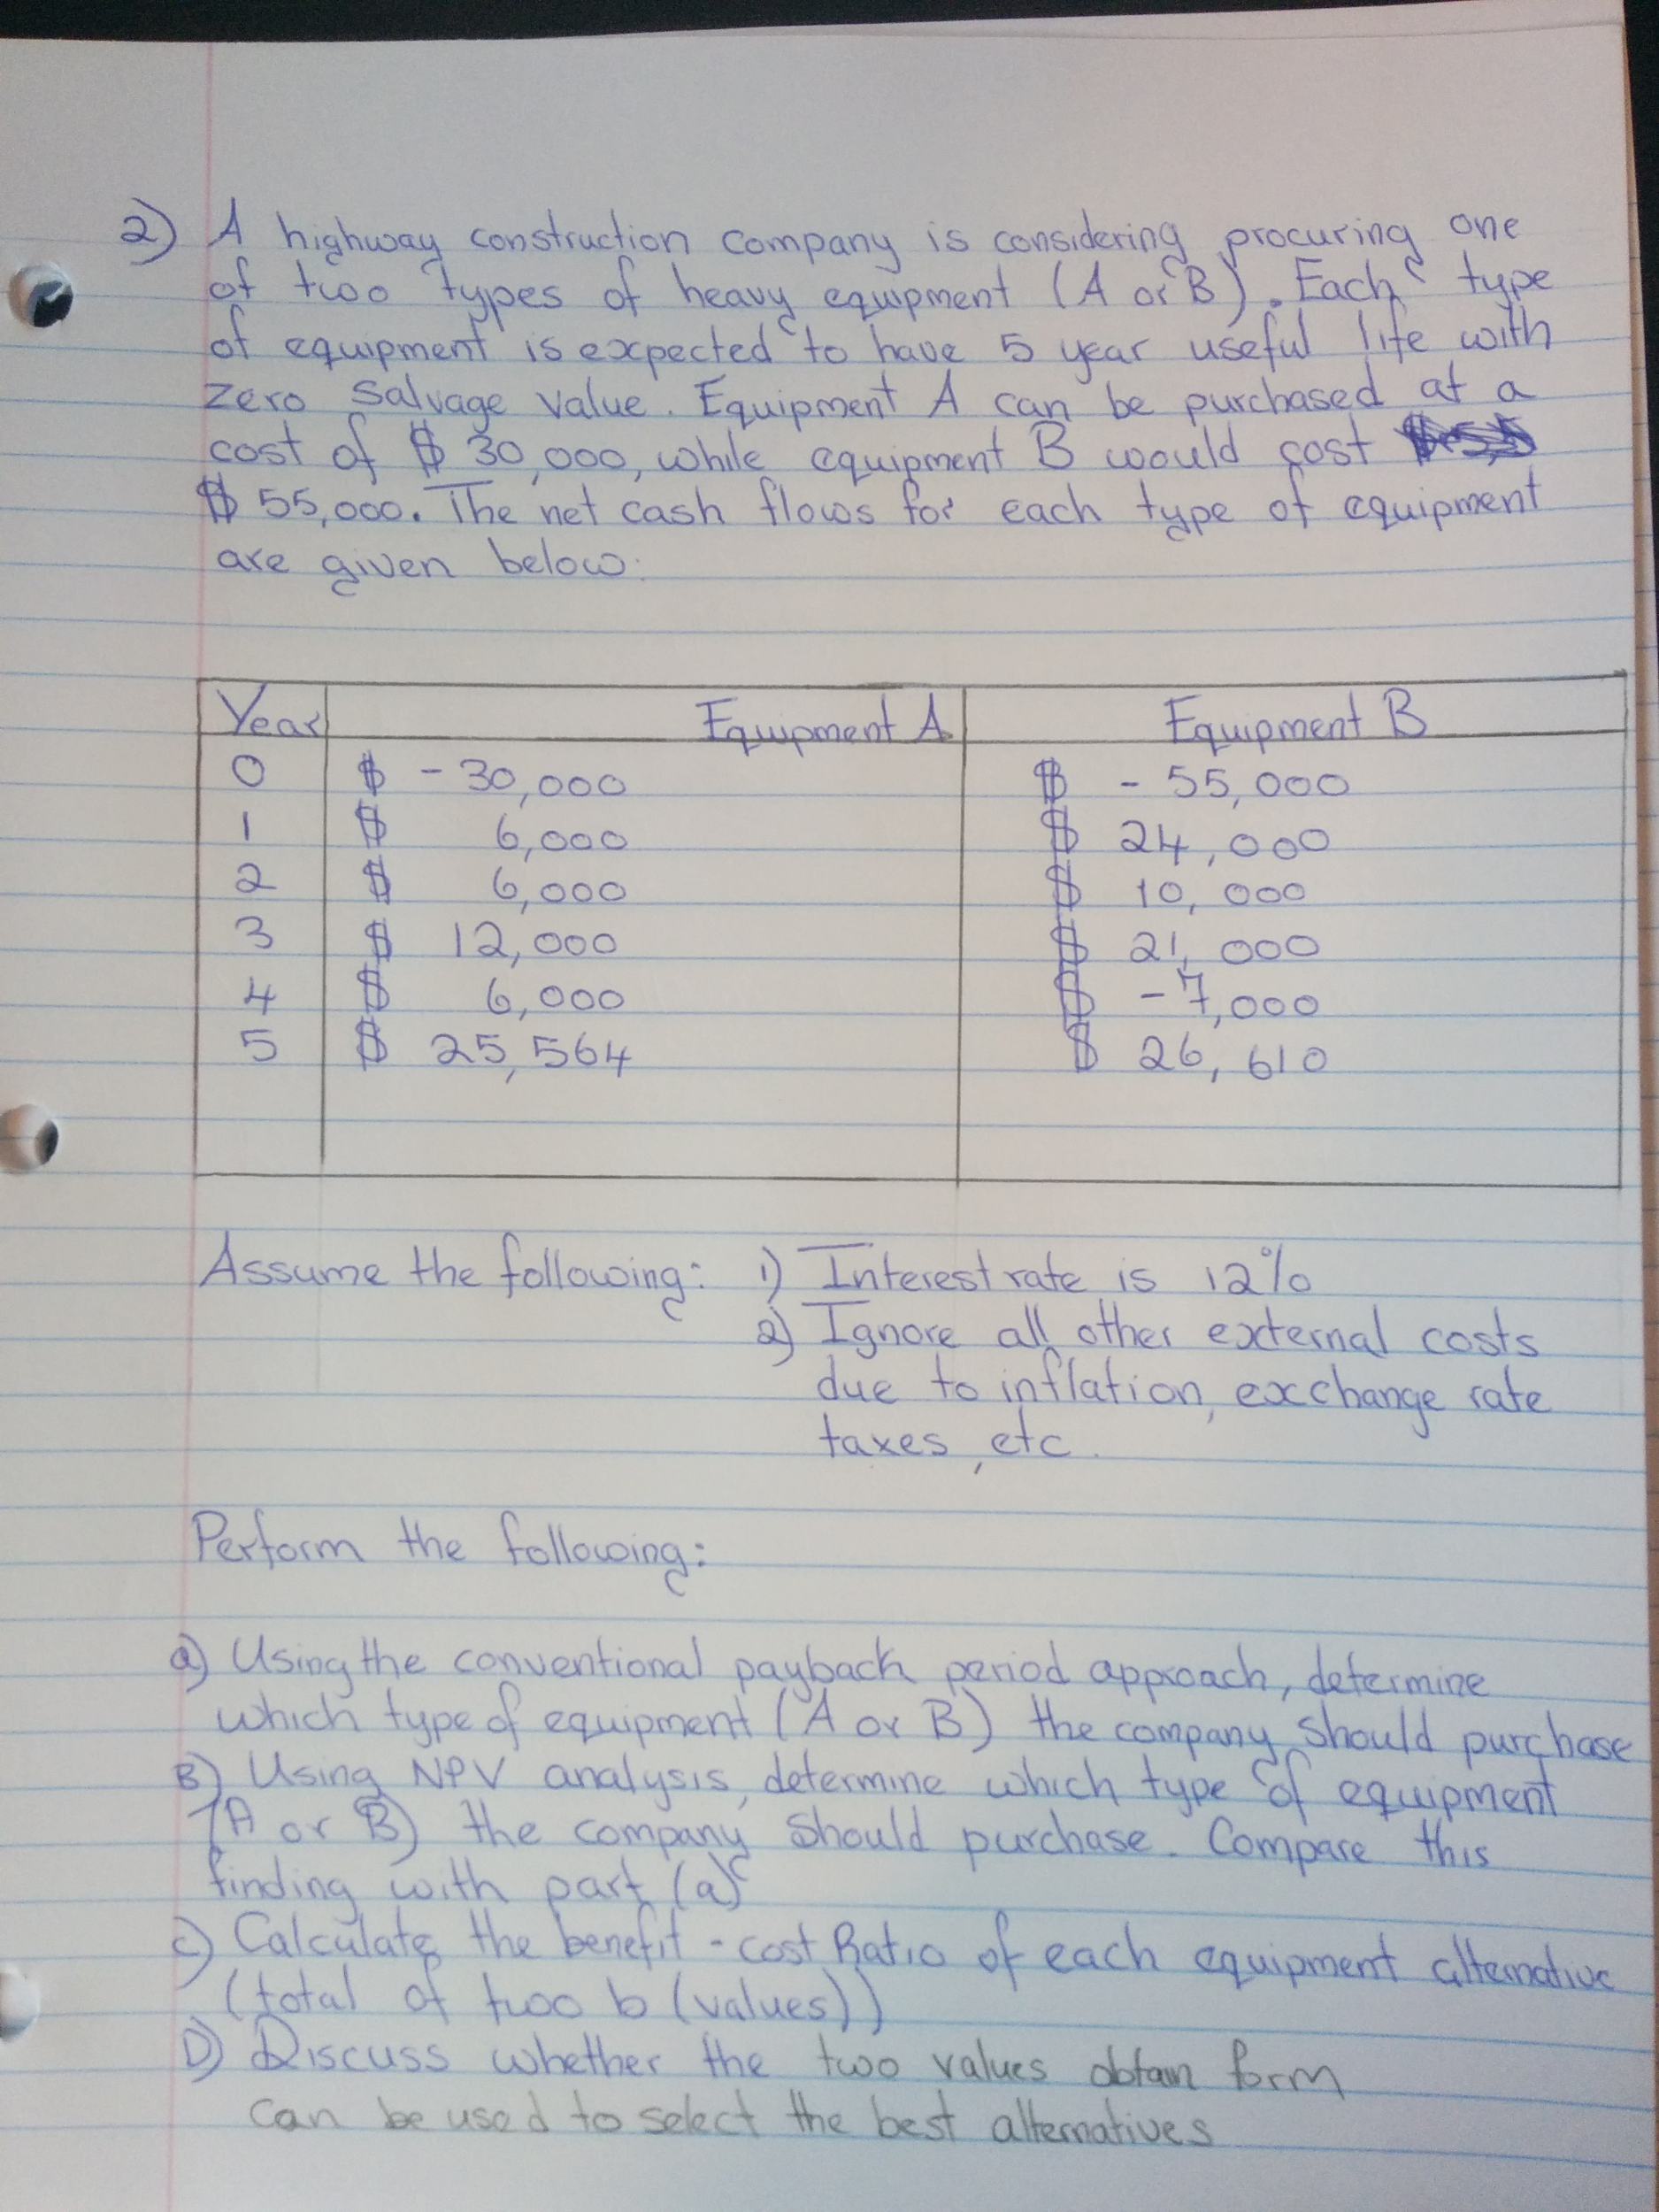 2) A highway construction company is considering procuring one
of two types of heavy equipment (A or B). Each type
of equipment is expected to have 5 year useful life with
zero salvage value. Equipment A can be purchased at a
cost of $ 30,000, while equipment B would cost
$ 55,000. The net cash flows for each type of equipment
are given below:
Year Equipment A Equipment B
0 $ - 30,000 $ - 55,000
1 $ 6,000 $ 24,000
2 $ 6,000 $ 10,000
3 $ 12,000 $ 21,000
4 $ 6,000 $ -7,000
5 $ 25,564 $ 26,610
Assume the following: 1) Interest rate is 12%
2) Ignore all other external costs
due to inflation, exchange rate
taxes, etc.
Perform the following:
a) Using the conventional payback period approach, determine
which type of equipment (A or B) the company should purchase
B) Using NPV analysis, determine which type of equipment
(A or B) the company should purchase. Compare this
finding with part (a)
c) Calculate the benefit - cost Ratio of each equipment alternative
(total of two b (values))
D) Discuss whether the two values obtain form
can be used to select the best alternatives